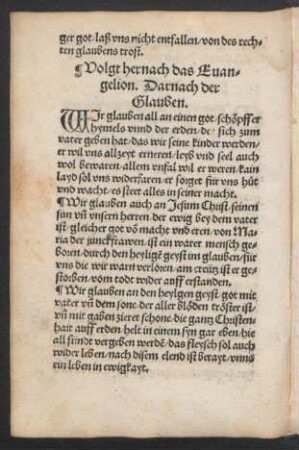 ger got/ laß vns nicht entfallen/ von des rech-
ten glaubens trost.
¶ Volgt hernach das Euan-
gelion. Darnach der
Glauben.
WIr glauben all an einen got/ schöpffer
hymels vnnd der erden/ de/ sich zum
vater geben hat/ das wir seine kinder werden/
er wil vns allzeyt erneren/ leyb vnd seel auch
wol bewaren/ allem vnfal wil er weren/ kain
layd sol vns widerfaren/ er sorget für vns hüt
vnd wacht/ es steet alles in seiner macht.
¶ Wir glauben auch an Jesum Christ/ seinen
sun vñ vnsern herren/ der ewig bey dem vater
ist/ gleicher got vō macht vnd eren/ von Ma-
ria der junckfrawen/ ist ein warer mensch ge-
boren/ durch den heyligē geyst im glauben/ für
vns die wir warn verloren/ am creütz ist er ge-
storben/ vom todt wider auff erstanden.
¶ Wir glauben an den heylgen geyst/ got mit
vater vñ dem sone/ der aller blöden tröster ist/
vñ mit gaben zieret schone/ die gantz Christen-
hait auff erden/ helt in einem syn gar eben/ hie
all sündt vergeben werdē/ das fleysch sol auch
wider leben/ nach disem elend ist berayt/ vnns
ein leben in ewigkayt.